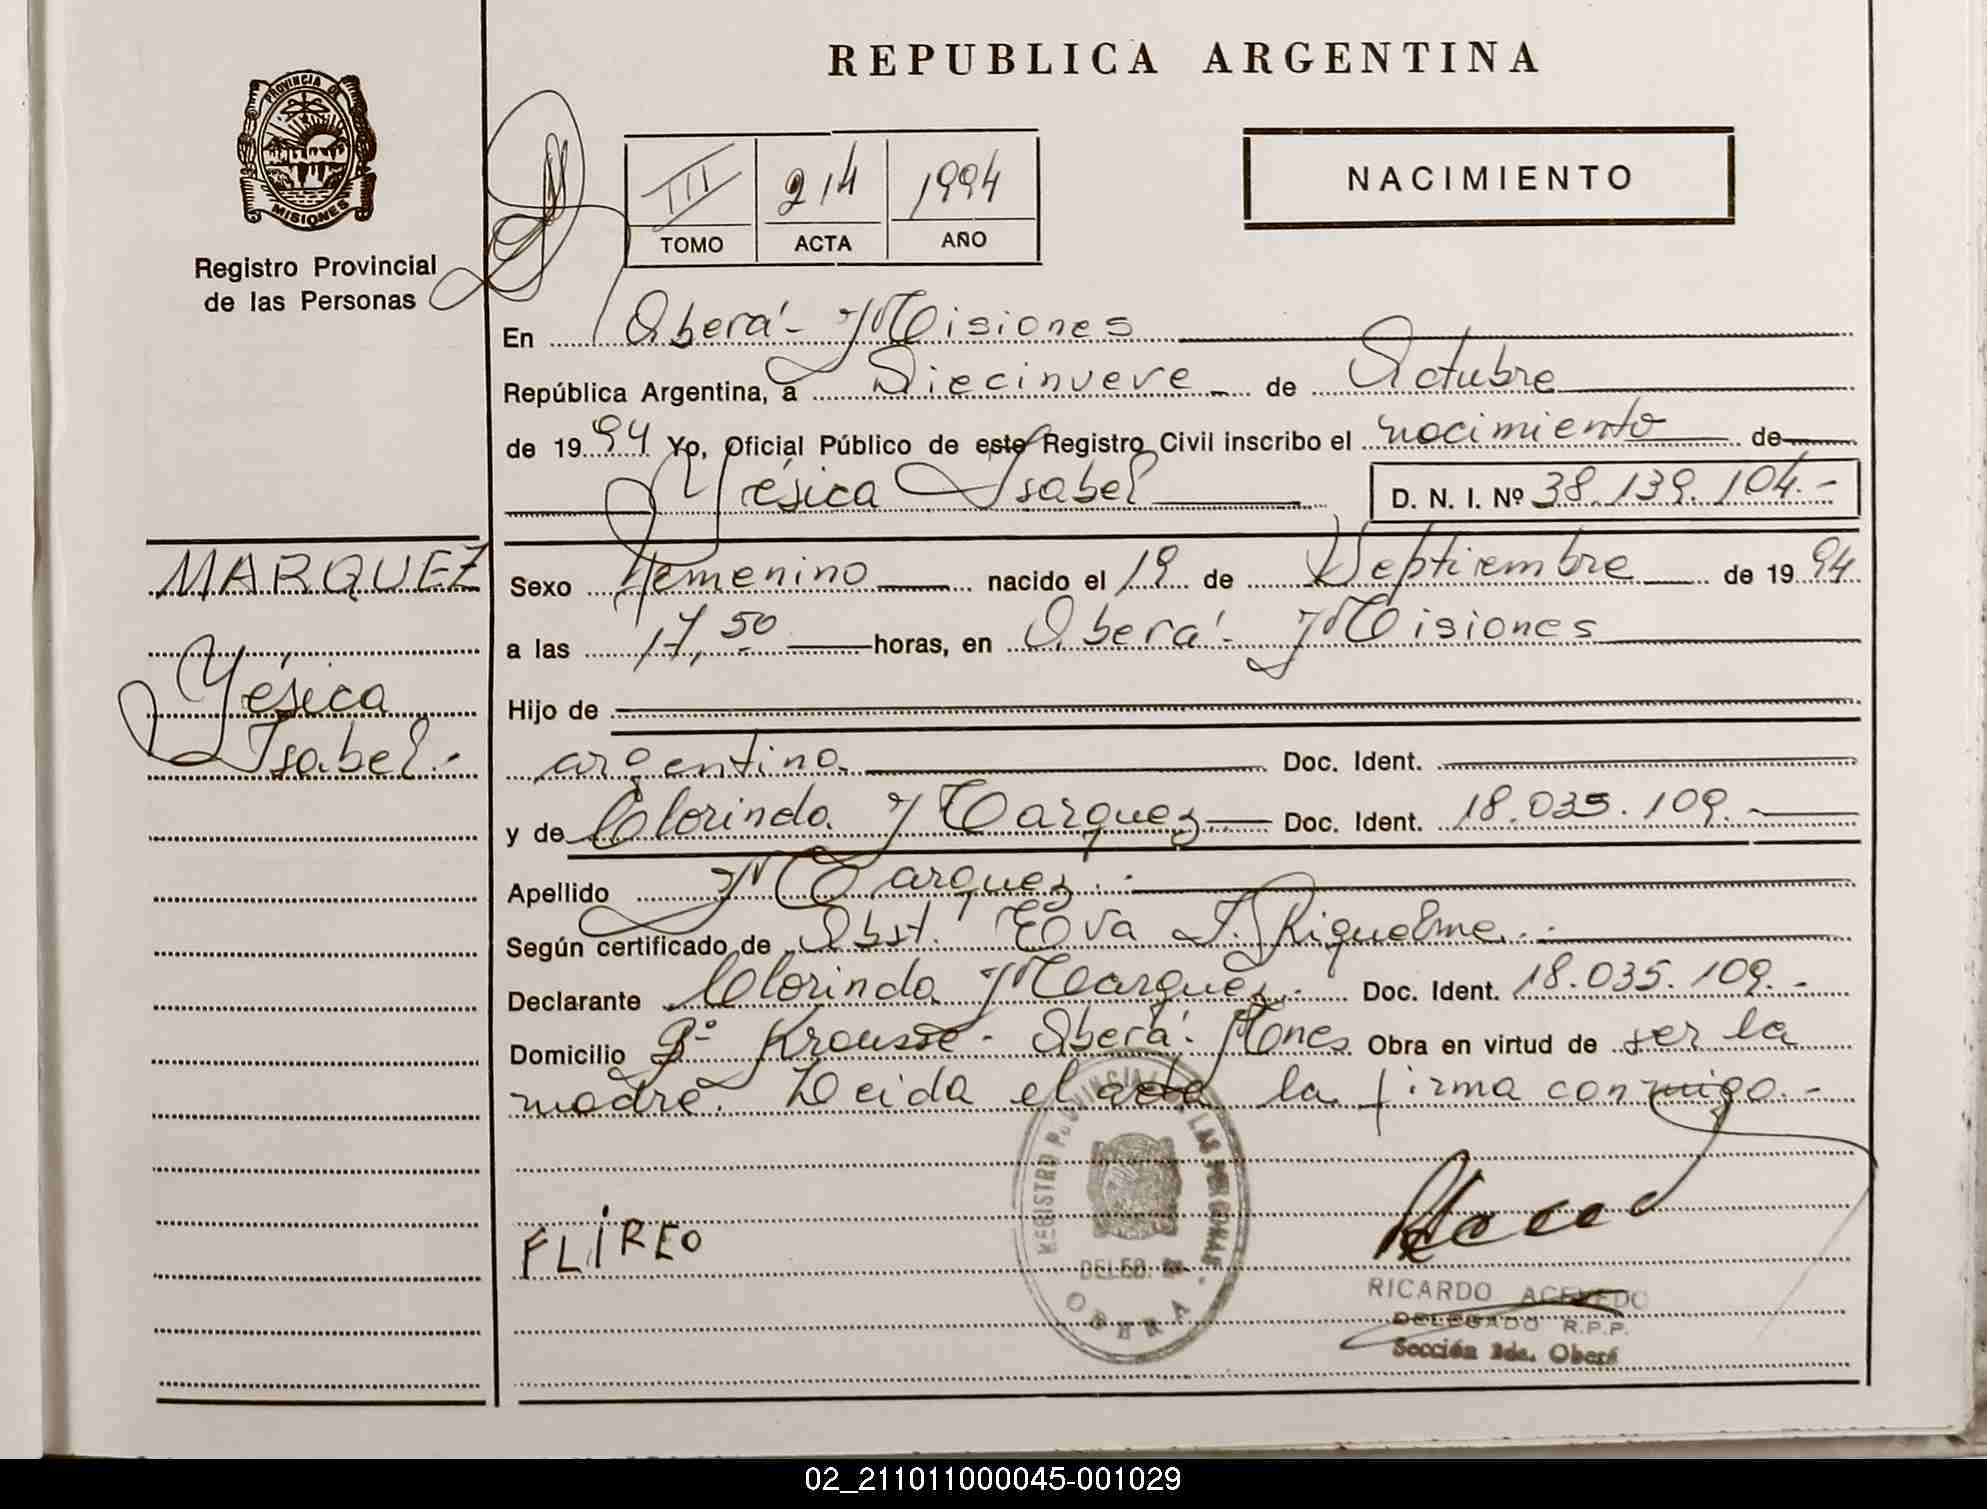 REPUBLICA ARGENTINA
PROVINCIA DE
MISIONES
Registro Provincial
de las Personas
III 214 1994
TOMO ACTA AÑO
NACIMIENTO
En Oberá - Misiones
República Argentina, a Diecinueve de Octubre
de 1994 Yo, Oficial Público de este Registro Civil inscribo el nacimiento de
Yésica Isabel D. N. I. Nº 38.139.104.-
MARQUEZ
Yésica
Isabel.-
Sexo Femenino nacido el 19 de Septiembre de 1994
a las 17,50 horas, en Oberá - Misiones
Hijo de
argentina Doc. Ident.
y de Clorinda Marquez Doc. Ident. 18.035.109.-
Apellido Marquez.-
Según certificado de Obst. Eva F. Riquelme.-
Declarante Clorinda Marquez.- Doc. Ident. 18.035.109.-
Domicilio Bº Krausse - Oberá - Mnes Obra en virtud de ser la
madre. Leida el acta la firma conmigo.-
REGISTRO PROVINCIAL DE LAS PERSONAS
DELEG.
OBERA
RICARDO ACEVEDO
DELEGADO R.P.P.
Sección 2da. Oberá
02_211011000045-001029